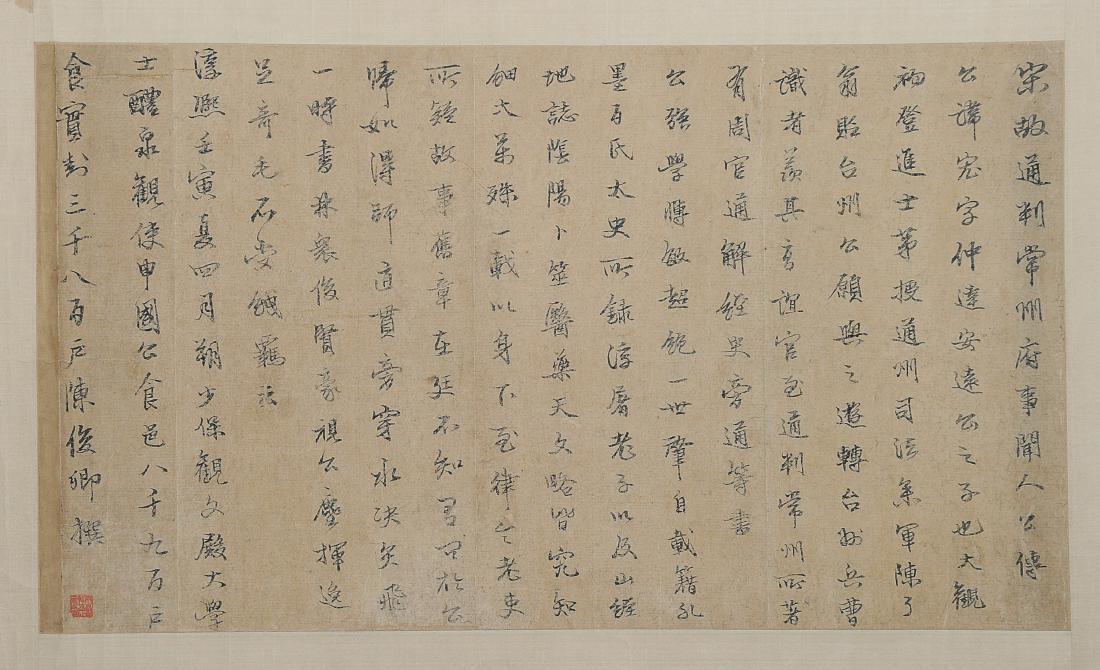 宋故通判常州府事聞人公傳
公諱宏字仲達安遠公之子也大觀
初登進士第授通州司法參軍陳了
翁貽台州公願與之遊轉台州兵曹
識者羨其高誼官至通判常州所著
有周官通解經史旁通等書
公強學博敏超鉅一世肇自載籍孔
墨百氏太史所錄浮屠老子以及山經
地誌陰陽卜筮醫藥天文略皆究知
細大萬殊一載以身下至律令老吏
所疑故事舊章在廷不知有問於公
歸如得師直貫旁穿水決矢飛
一時書林衆俊賢豪視公麈揮逸
足奇毛不受銜羈
淳熙壬寅夏四月朔少保觀文殿大學
士醴泉觀使申國公食邑八千九百戶
食實封三千八百戶陳俊卿撰